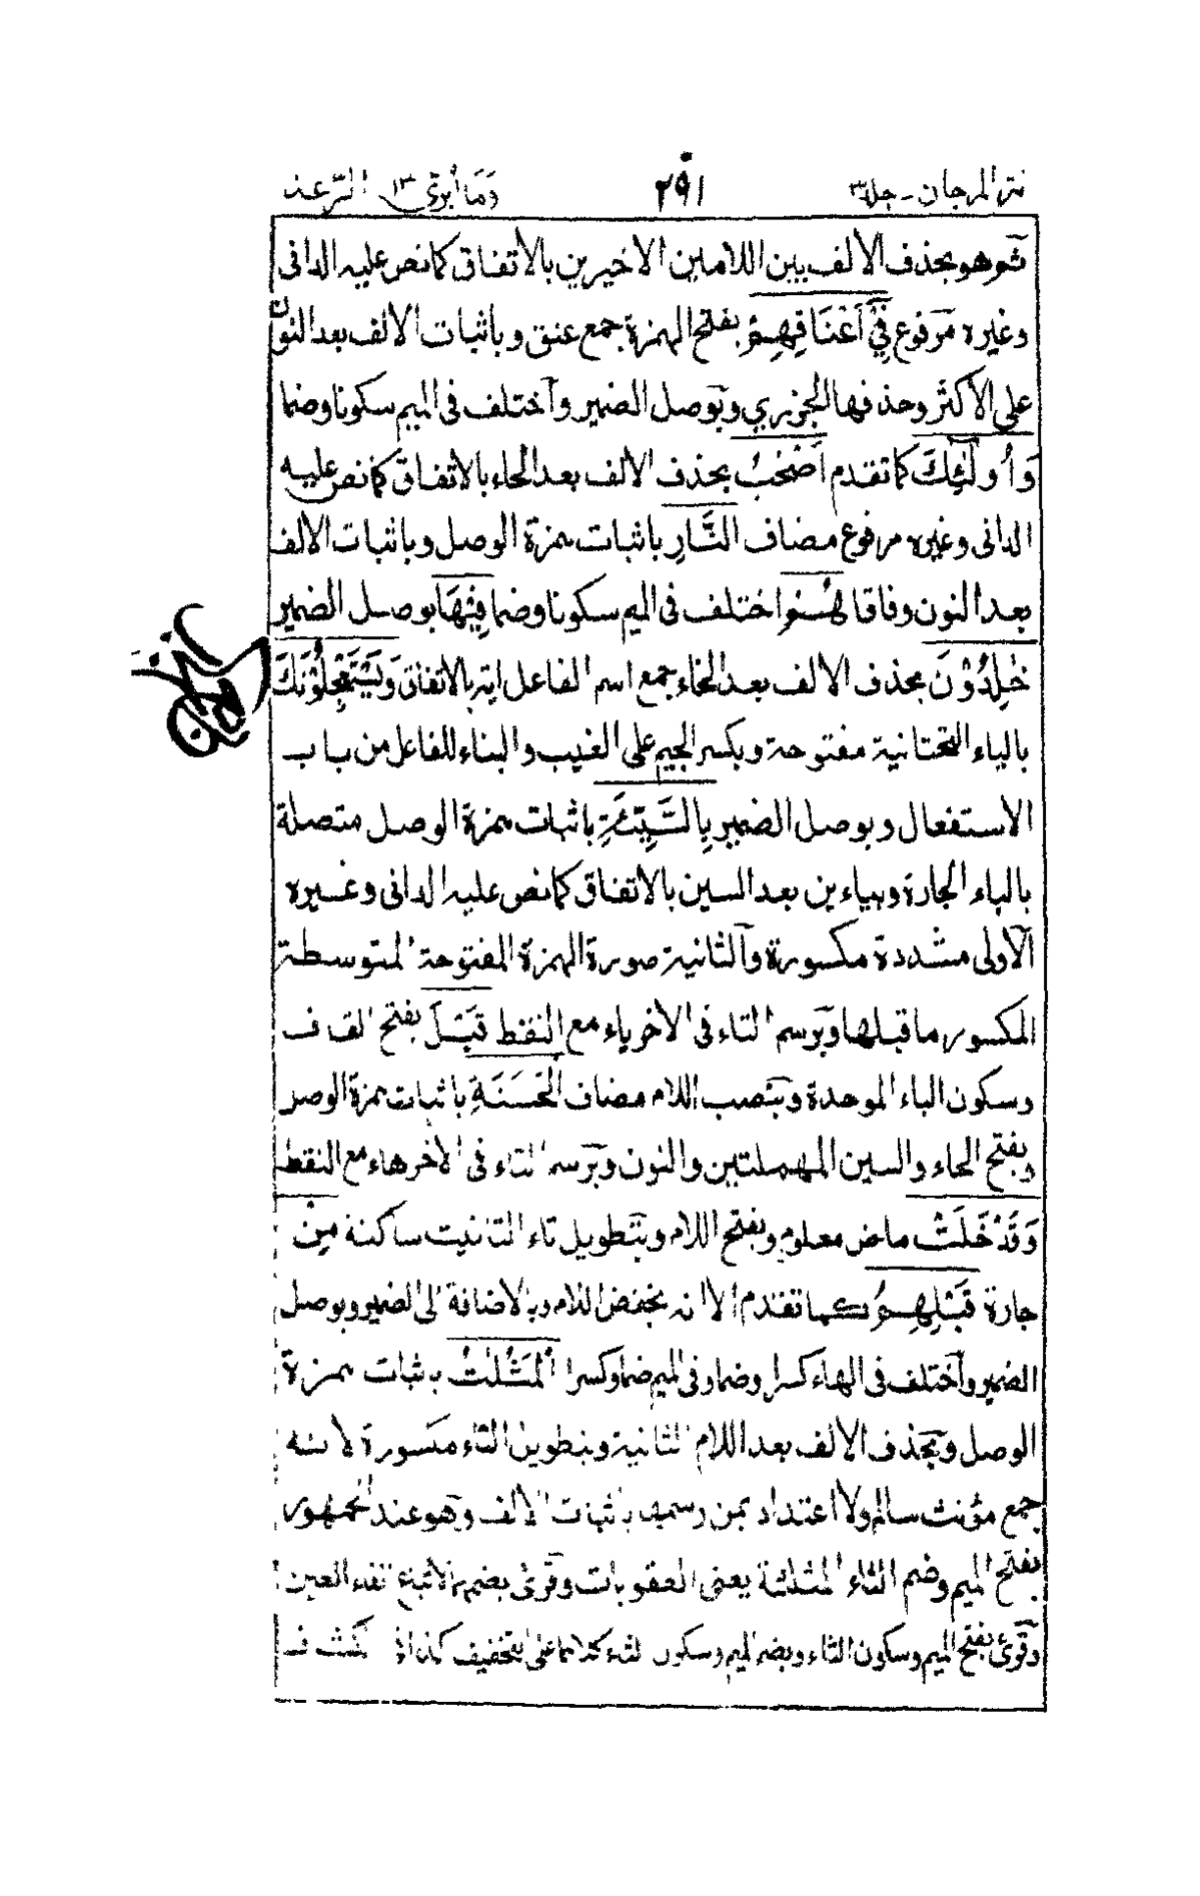 نثر المرجان - جلد٣
٢٩١
وما أبرئ ١٣ الرعد
ثم وهو بحذف الالف بين اللامين الاخيرين بالاتفاق كما نص عليه الدانى
وغيره مرفوع فِىْٓ اَعْنَاقِهِمْ بفتح الهمزة جمع عنق وباثبات الالف بعد النون
على الاكثر وحذفها الجزرى وبوصل الضمير واختلف فى الميم سكونا وضما
وَاُولٰٓئِكَ كما تقدم اَصْحٰبُ بحذف الالف بعد الحاء بالاتفاق كما نص عليه
الدانى وغيره مرفوع مضاف النَّارِ باثبات همزة الوصل وباثبات الالف
بعد النون وفاقا هُمْ واختلف فى الميم سكونا وضما فِيْهَا بوصل الضمير
خٰلِدُوْنَ بحذف الالف بعد الخاء جمع اسم الفاعل اية بالاتفاق وَيَسْتَعْجِلُوْنَكَ
بالياء التحتانية مفتوحة وبكسر الجيم على الغيب والبناء للفاعل من باب
الاستفعال وبوصل الضمير بِالسَّيِّئَةِ باثبات همزة الوصل متصلة
بالباء الجارة وبياءين بعد السين بالاتفاق كما نص عليه الدانى وغيره
الاولى مشددة مكسورة والثانية صورة الهمزة المفتوحة المتوسطة
المكسور ما قبلها وبرسم التاء فى الاخرياء مع النقط قَبْلَ بفتح القاف
وسكون الباء الموحدة وبنصب اللام مضاف الْحَسَنَةِ باثبات همزة الوصل
وبفتح الحاء والسين المهملتين والنون وبرسم التاء فى الاخرهاء مع النقط
وَقَدْ خَلَتْ ماض معلوم وبفتح اللام وبتطويل تاء التانيث ساكنة مِنْ
جارة قَبْلِهِمُ كما تقدم الا انه بخفض اللام وبالاضافة الى الضمير وبوصل
الضمير واختلف فى الهاء كسرا وضما وفى الميم ضما وكسرا الْمَثُلٰتُ باثبات همزة
الوصل وبحذف الالف بعد اللام الثانية وبتطويل التاء مكسورة لانه
جمع مؤنث سالم ولا اعتداد بمن رسمه باثبات الالف وهو عند الجمهور
بفتح الميم وضم الثاء المثلثة يعنى العقوبات وقرئ بضمهما لاتباع الفاء العين
وقرئ بفتح الميم وسكون الثاء وبضم الميم وسكون الثاء كلاهما على التخفيف كذا فى الكشاف